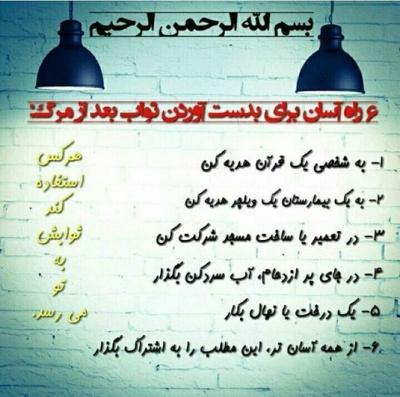 بسم الله الرحمن الرحیم
۶ راه آسان برای بدست آوردن ثواب بعد از مرگ:
۱- به شخصی یک قرآن هدیه کن
۲- به یک بیمارستان یک ویلچر هدیه کن
۳- در تعمیر یا ساخت مسجد شرکت کن
۴- در جای پر ازدحام، آب سردکن بگذار
۵- یک درخت یا نهال بکار
۶- از همه آسان تر، این مطلب را به اشتراک بگذار
هرکس
استفاده
کند
ثوابش
به
تو
می رسد.